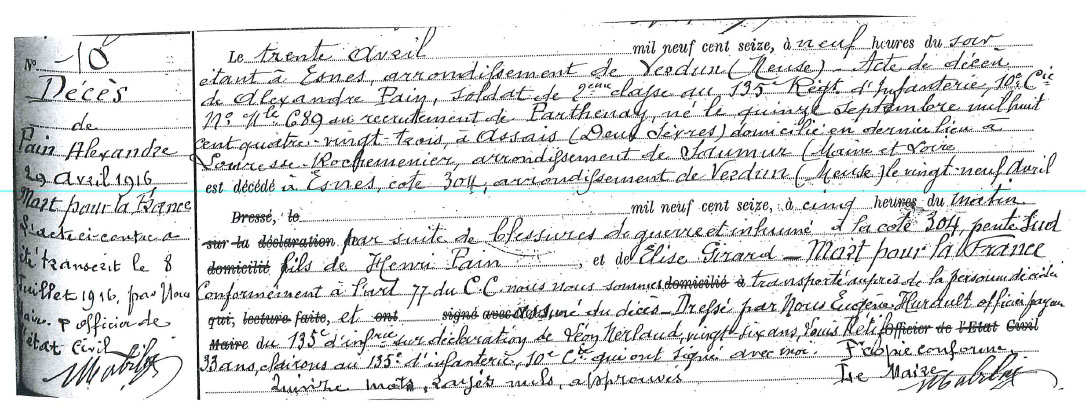 N° 10
Décès
de
Pain Alexandre
29 Avril 1916
Mort pour la France
L'acte ci-contre a
été transcrit le 8
Juillet 1916, par Nous
Maire & officier de
l'état Civil
Le trente Avril mil neuf cent seize, à neuf heures du soir
étant à Esnes, arrondissement de Verdun (Meuse) - Acte de décès
de Alexandre Pain, soldat de 2eme classe au 135e Régt d'Infanterie, 10e Cie
N° Mle 689 au recrutement de Parthenay, né le quinze Septembre mil huit
cent quatre-vingt-trois, à Assais (Deux Sèvres) domicilié en dernier lieu à
Louresse-Rochemenier, arrondissement de Saumur (Maine et Loire
est décédé à Esnes, cote 304, arrondissement de Verdun (Meuse) le vingt-neuf Avril
Dressé, le mil neuf cent seize, à cinq heures du matin
sur la déclaration par suite de blessures de guerre et inhumé à la cote 304, pente Sud
domicilié fils de Henri Pain, et de Elise Girard - Mort pour la France
Conformément à l'art 77 du C.C. nous nous sommes domicilié à transporté auprès de la personne décédée
qui, lecture faite, et ont signé avec assuré du décès - Dressé par Nous Eugène Hurdult officier payeur
Maire du 135e d'infrie sur déclaration de Léon Merlaud, vingt-six ans, Louis Rétif officier de l'Etat Civil
33 ans, clairons au 135e d'infanterie, 10e Cie qui ont signé avec moi. P. copie conforme,
Quinze mots rayés nuls, approuvés Le Maire